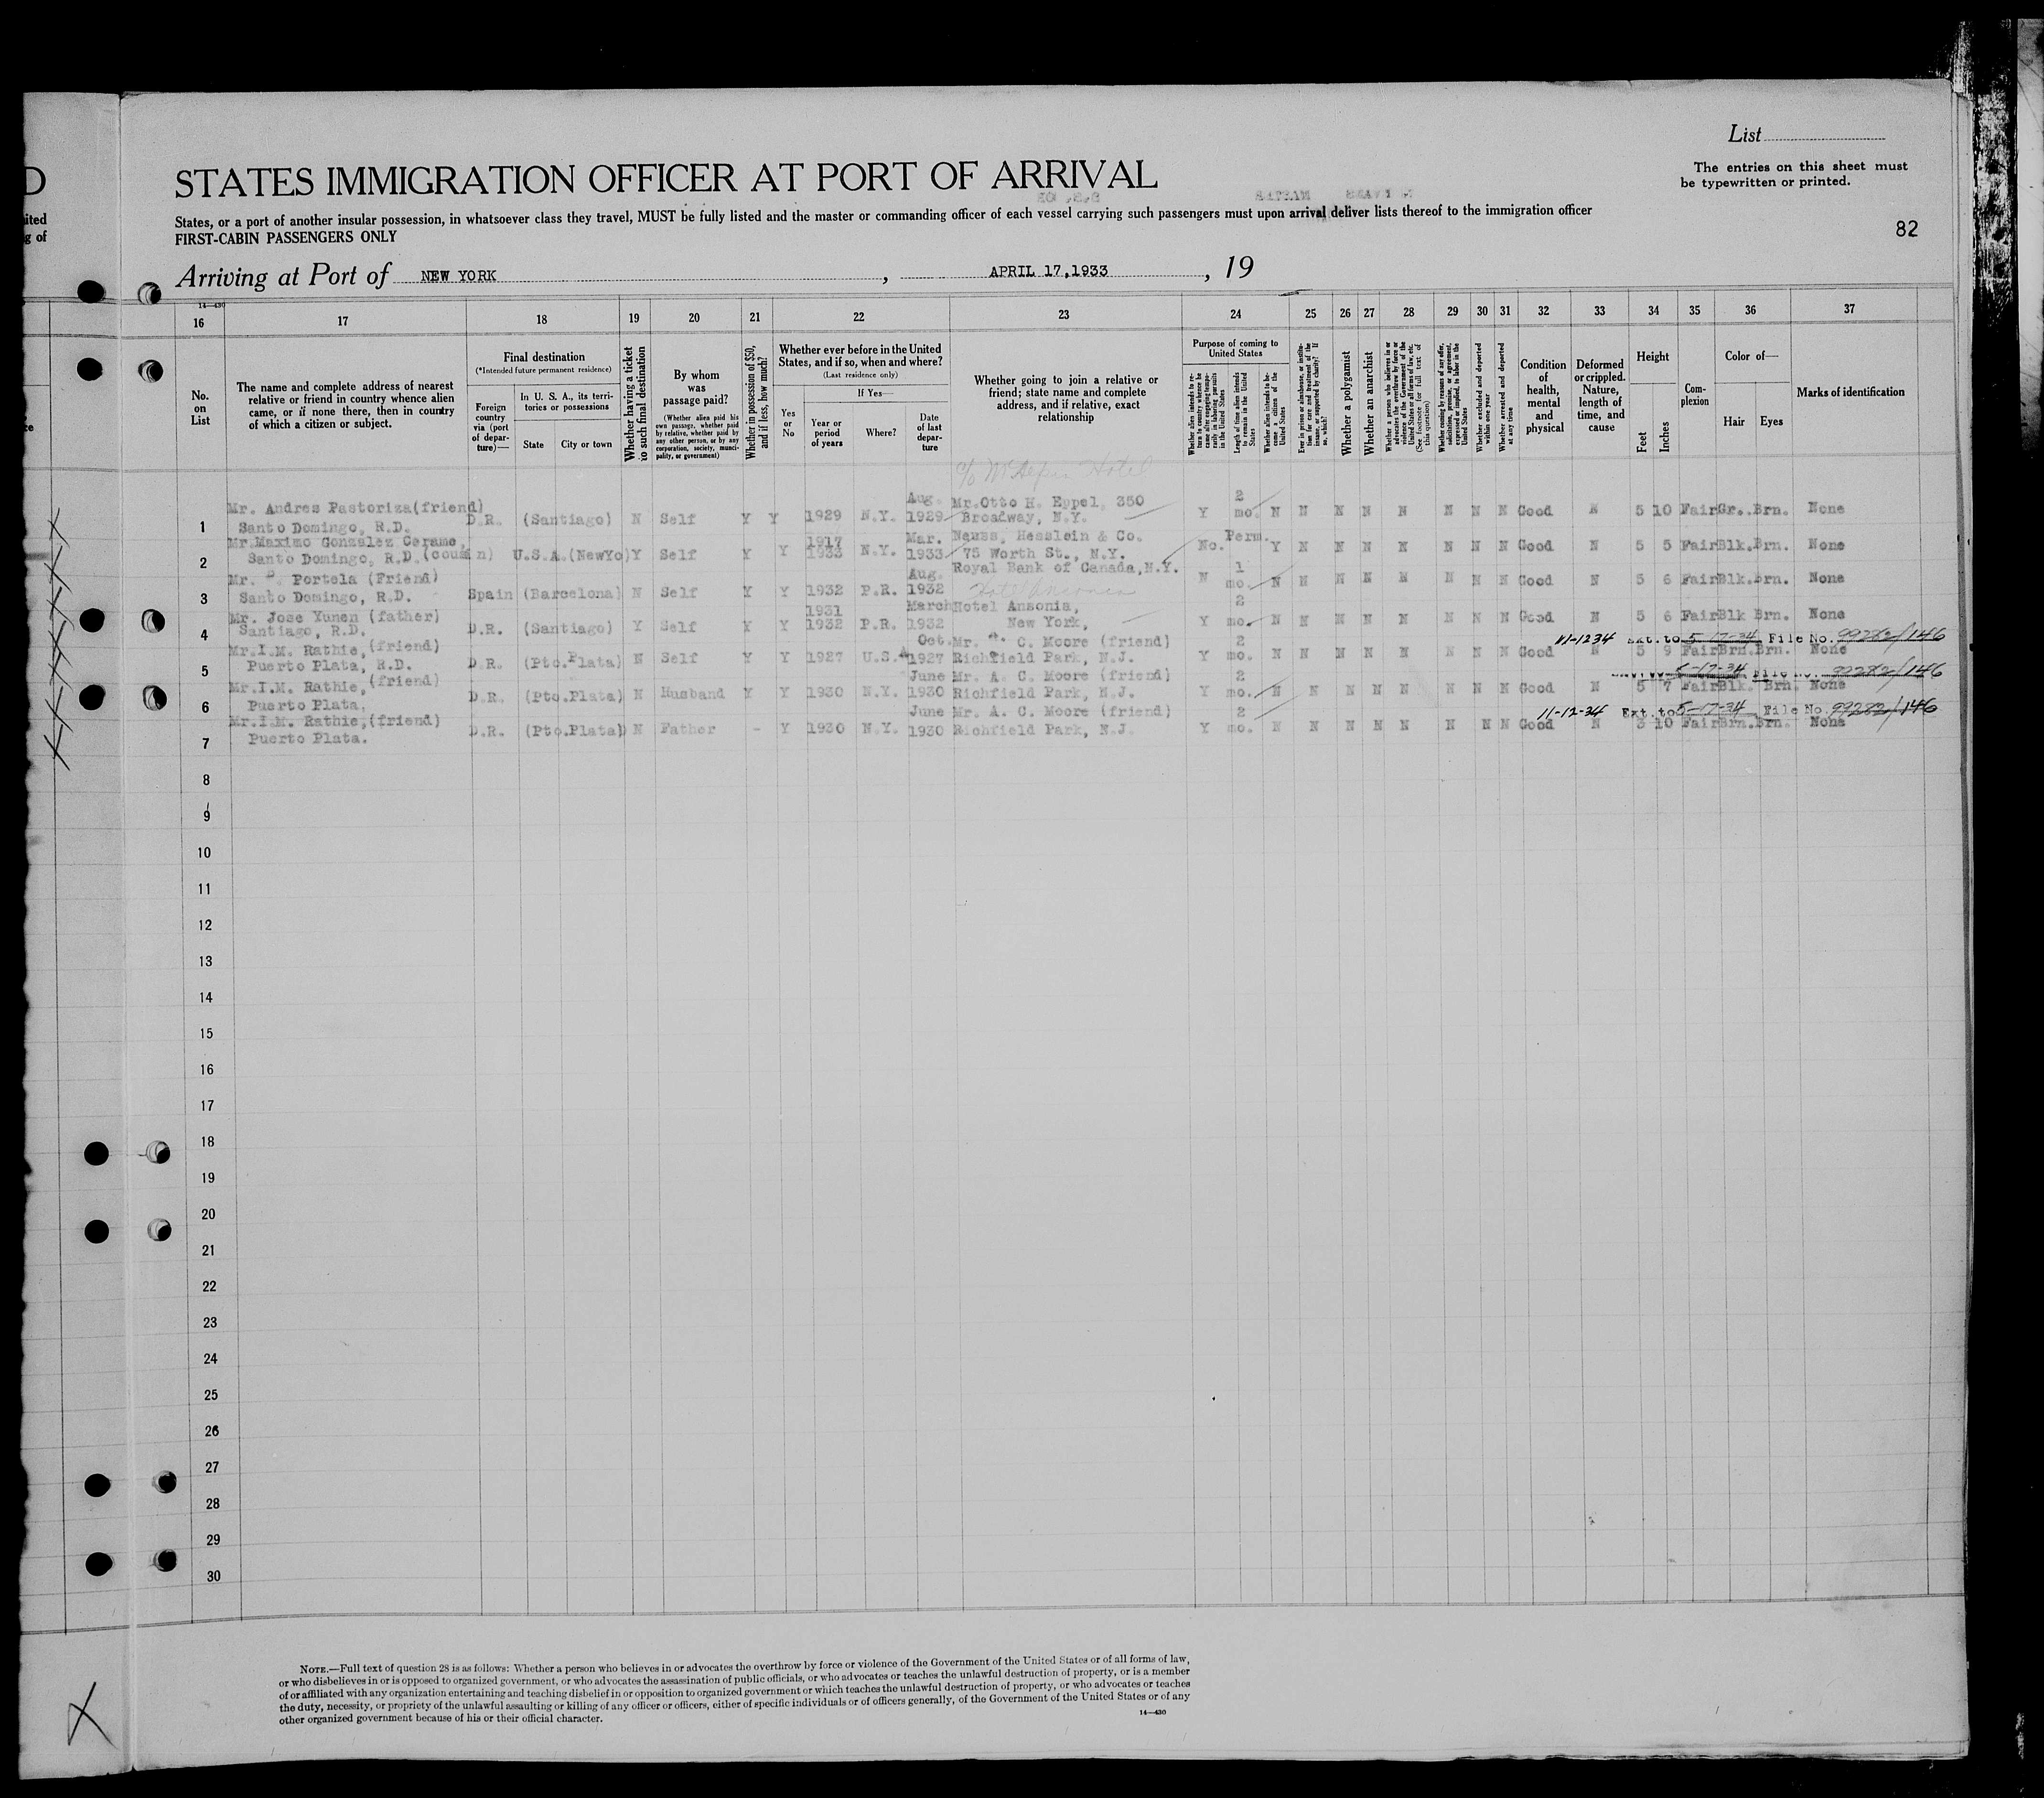 D
ited
g of
te
List
STATES IMMIGRATION OFFICER AT PORT OF ARRIVAL
The entries on this sheet must
be typewritten or printed.
States, or a port of another insular possession, in whatsoever class they travel, MUST be fully listed and the master or commanding officer of each vessel carrying such passengers must upon arrival deliver lists thereof to the immigration officer
FIRST-CABIN PASSENGERS ONLY
82
Arriving at Port of NEW YORK, APRIL 17,1933, 19
14—430
16 17 18 19 20 21 22 23 24 25 26 27 28 29 30 31 32 33 34 35 36 37
No. on List
The name and complete address of nearest relative or friend in country whence alien came, or if none there, then in country of which a citizen or subject.
Final destination
(*Intended future permanent residence)
Foreign country via (port of departure)—
In U. S. A., its territories or possessions
State City or town
Whether having a ticket to such final destination
By whom was passage paid?
(Whether alien paid his own passage, whether paid by relative, whether paid by any other person, or by any corporation, society, municipality, or government)
Whether in possession of $50, and if less, how much?
Whether ever before in the United States, and if so, when and where?
(Last residence only)
Yes or No
If Yes—
Year or period of years
Where?
Date of last departure
Whether going to join a relative or friend; state name and complete address, and if relative, exact relationship
Purpose of coming to United States
Whether alien intends to return to country whence he came after engaging temporarily in laboring pursuits in the United States
Length of time alien intends to remain in the United States
Whether alien intends to become a citizen of the United States
Ever in prison or almshouse, or institution for care and treatment of the insane, or supported by charity? If so, which?
Whether a polygamist
Whether an anarchist
Whether a person who believes in or advocates the overthrow by force or violence of the Government of the United States or all forms of law, etc. (See footnote for full text of this question)
Whether coming by reasons of any offer, solicitation, promise, or agreement, expressed or implied, to labor in the United States
Whether excluded and deported within one year
Whether arrested and deported at any time
Condition of health, mental and physical
Deformed or crippled. Nature, length of time, and cause
Height
Feet Inches
Complexion
Color of—
Hair Eyes
Marks of identification
c/o McAlpin Hotel
1 Mr. Andres Pastoriza(friend) Santo Domingo, R.D. D.R. (Santiago) N Self Y Y 1929 N.Y. Aug. 1929 Mr.Otto H. Eppel, 350 Broadway, N.Y. Y 2 mo. N N N N N N N N Good N 5 10 Fair Gr. Brn. None
2 Mr.Maximo Gonzalez Cerame, Santo Domingo, R.D.(cousin) U.S.A.(NewYo) Y Self Y Y 1917 1933 N.Y. Mar. 1933 Neuss, Hesslein & Co. 75 Worth St., N.Y. No. Perm. Y N N N N N N N Good N 5 5 Fair Blk. Brn. None
3 Mr. Portela (Friend) Santo Domingo, R.D. Spain (Barcelona) N Self Y Y 1932 P.R. Aug. 1932 Royal Bank of Canada,N.Y. Hotel Ansonia N 1 mo. N N N N N N N N Good N 5 6 Fair Blk. Brn. None
4 Mr. Jose Yunen (father) Santiago, R.D. D.R. (Santiago) Y Self Y Y 1931 1932 P.R. March 1932 Hotel Ansonia, New York, Y 2 mo. N N N N N N N N Good N 5 6 Fair Blk Brn. None
11-1234 Ext. to 5-17-34 File No. 99282/146
5 Mr.I.M. Rathie,(friend) Puerto Plata, R.D. D.R. (Pto.Plata) N Self Y Y 1927 U.S.A Oct. 1927 Mr. A. C. Moore (friend) Richfield Park, N.J. Y 2 mo. N N N N N N N N Good N 5 9 Fair Brn. Brn. None
5-17-34 File No. 99282/146
6 Mr.I.M. Rathie,(friend) Puerto Plata, D.R. (Pto.Plata) N Husband Y Y 1930 N.Y. June 1930 Mr. A. C. Moore (friend) Richfield Park, N.J. Y 2 mo. N N N N N N N N Good N 5 7 Fair Blk. Brn. None
11-12-34 Ext.to 5-17-34 File No. 99282/146
7 Mr.I.M. Rathie,(friend) Puerto Plata. D.R. (Pto.Plata) N Father - Y 1930 N.Y. June 1930 Mr. A. C. Moore (friend) Richfield Park, N.J. Y 2 mo. N N N N N N N N Good N 3 10 Fair Brn. Brn. None
8
9
10
11
12
13
14
15
16
17
18
19
20
21
22
23
24
25
26
27
28
29
30
NOTE.—Full text of question 28 is as follows: Whether a person who believes in or advocates the overthrow by force or violence of the Government of the United States or of all forms of law,
or who disbelieves in or is opposed to organized government, or who advocates the assassination of public officials, or who advocates or teaches the unlawful destruction of property, or is a member
of or affiliated with any organization entertaining and teaching disbelief in or opposition to organized government or which teaches the unlawful destruction of property, or who advocates or teaches
the duty, necessity, or propriety of the unlawful assaulting or killing of any officer or officers, either of specific individuals or of officers generally, of the Government of the United States or of any
other organized government because of his or their official character.
14—430